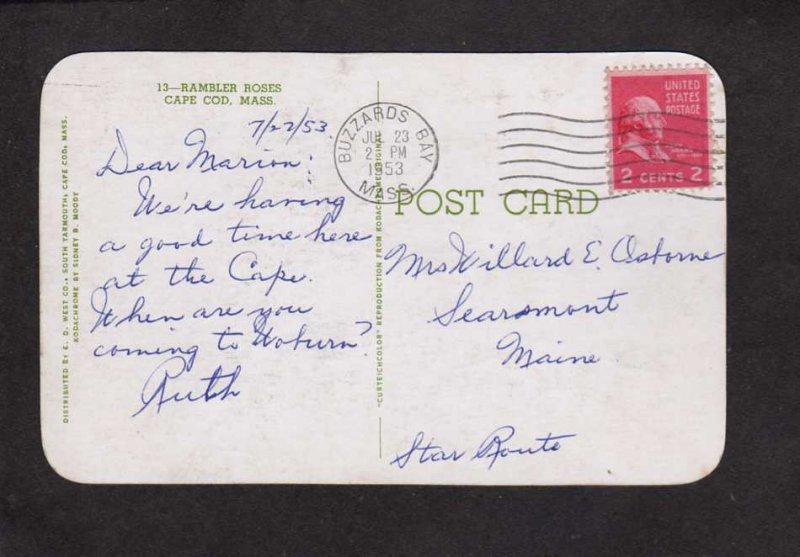 13—RAMBLER ROSES
CAPE COD, MASS.
7/22/53
Dear Marion:
We're having
a good time here
at the Cape.
When are you
coming to Woburn?
Ruth
DISTRIBUTED BY E. D. WEST CO., SOUTH YARMOUTH, CAPE COD, MASS.
KODACHROME BY SIDNEY B. MOODY
"CURTEICHCOLOR" REPRODUCTION FROM KODACHROME ORIGINAL
BUZZARDS BAY
JUL 23
PM
1953
MASS.
UNITED
STATES
POSTAGE
2 CENTS 2
POST CARD
Mrs Willard E. Osborne
Searsmont
Maine
Star Route